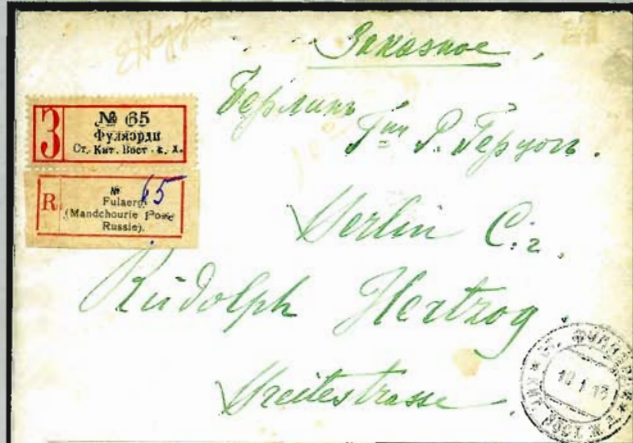 Заказное.
Берлинъ
Гну Р. Герцогъ.
З № 65
Фуляэрди
Ст. Кит. Вост. ж. д.
R № 65
Fulaerdi
(Mandchourie Poste
Russie).
Berlin C. 2.
Rudolph Hertzog.
Breitestrasse.
10 1 13